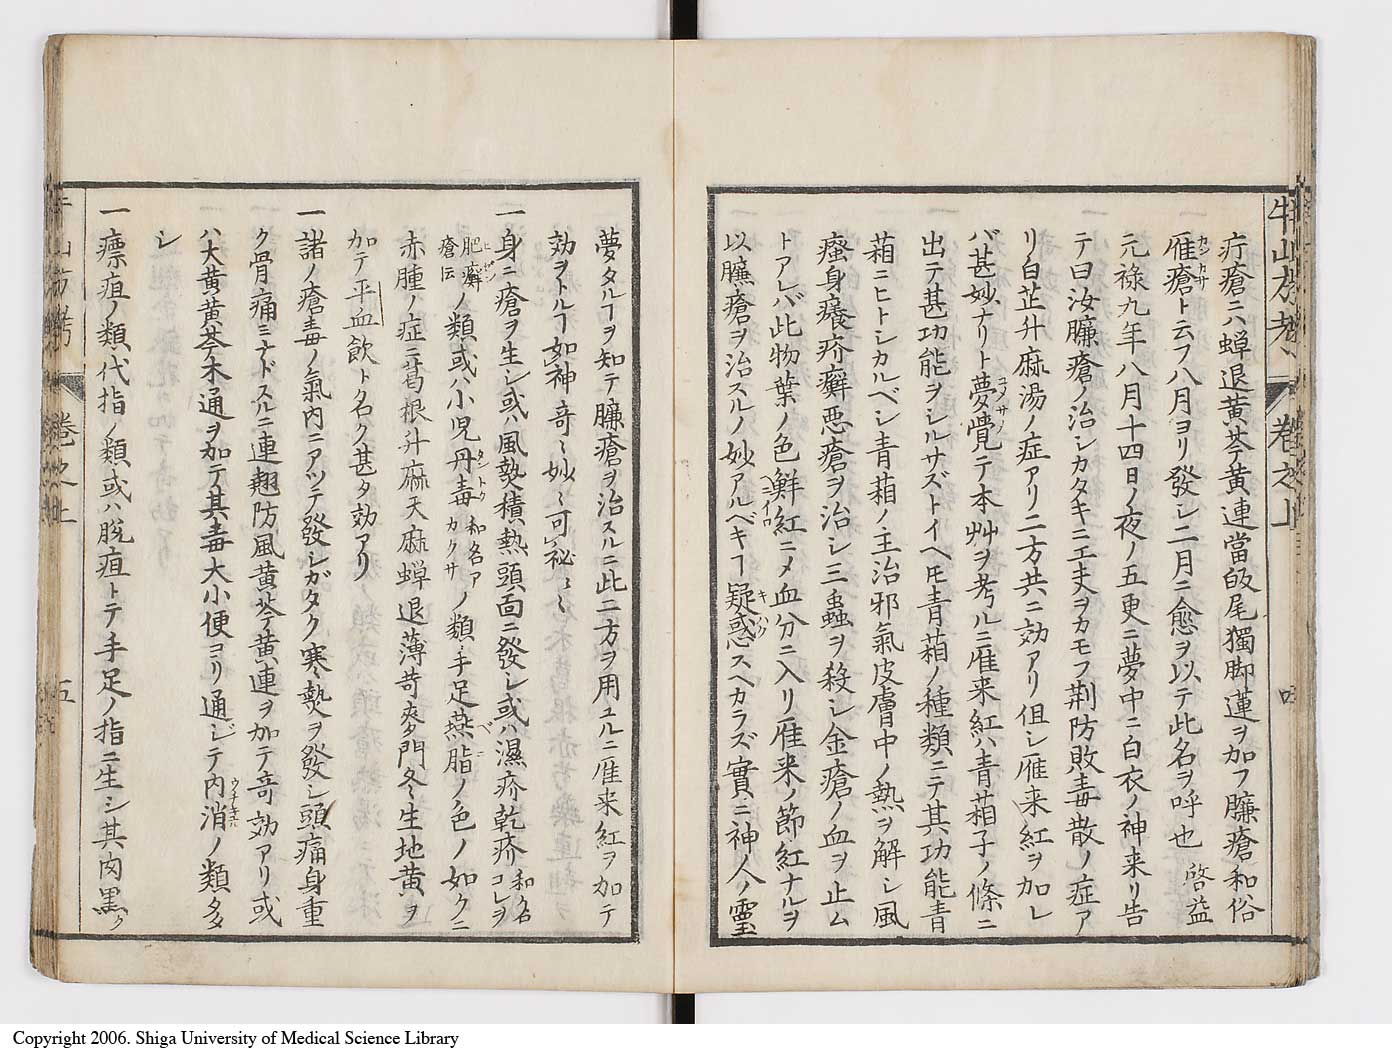 牛山方考 卷之上 四
疔瘡ニハ蝉退黄芩黄連當皈尾獨脚蓮ヲ加フ臁瘡和俗
雁瘡ト云フ八月ヨリ發シ二月ニ愈ヲ以テ此名ヲ呼也 啓益
元禄九年八月十四日ノ夜ノ五更ニ夢中ニ白衣ノ神来リ告
テ曰汝臁瘡ノ治シカタキニ工夫ヲカモフ荆防敗毒散ノ症ア
リ白芷升麻湯ノ症アリ二方共ニ効アリ但シ雁来紅ヲ加レ
バ甚妙ナリト夢覺テ本艸ヲ考ルニ雁来紅ハ青葙子ノ條ニ
出テ甚功能ヲシルサズトイヘ𪜈青葙ノ種類ニテ其功能青
葙ニヒトシカルベシ青葙ノ主治邪氣皮膚中ノ熱ヲ解シ風
瘙身癢疥癬惡瘡ヲ治シ三蟲ヲ殺シ金瘡ノ血ヲ止ム
トアレバ此物葉ノ色鮮紅ニメ血分ニ入リ雁来ノ節紅ナルヲ
以臁瘡ヲ治スルノ妙アルベキヿ疑惑スヘカラズ實ニ神人ノ靈
夢タルヿヲ知テ臁瘡ヲ治スルニ此二方ヲ用ユルニ雁来紅ヲ加テ
効ヲトルヿ如神奇〻妙〻可祕〻〻
一身ニ瘡ヲ生シ或ハ風熱積熱頭面ニ發シ或ハ濕疥乾疥 和名コレヲ
肥瘡癬伝ノ類或ハ小児丹毒 和名アカクサ ノ類手足燕脂ノ色ノ如クニ
赤腫ノ症ニ葛根升麻天麻蝉退薄苛麥門冬生地黄ヲ
加テ平血飲ト名ク甚タ効アリ
一諸ノ瘡毒ノ氣内ニアツテ發シガタク寒熱ヲ發シ頭痛身重
ク骨痛ミナドスルニ連翹防風黄芩黄連ヲ加テ奇効アリ或
ハ大黄黄芩木通ヲ加テ其毒大小便ヨリ通シテ内消ノ類多
シ
一瘭疽ノ類代指ノ類或ハ脱疽トテ手足ノ指ニ生シ其肉黒ク
牛山方考 卷之上 五
Copyright 2006. Shiga University of Medical Science Library